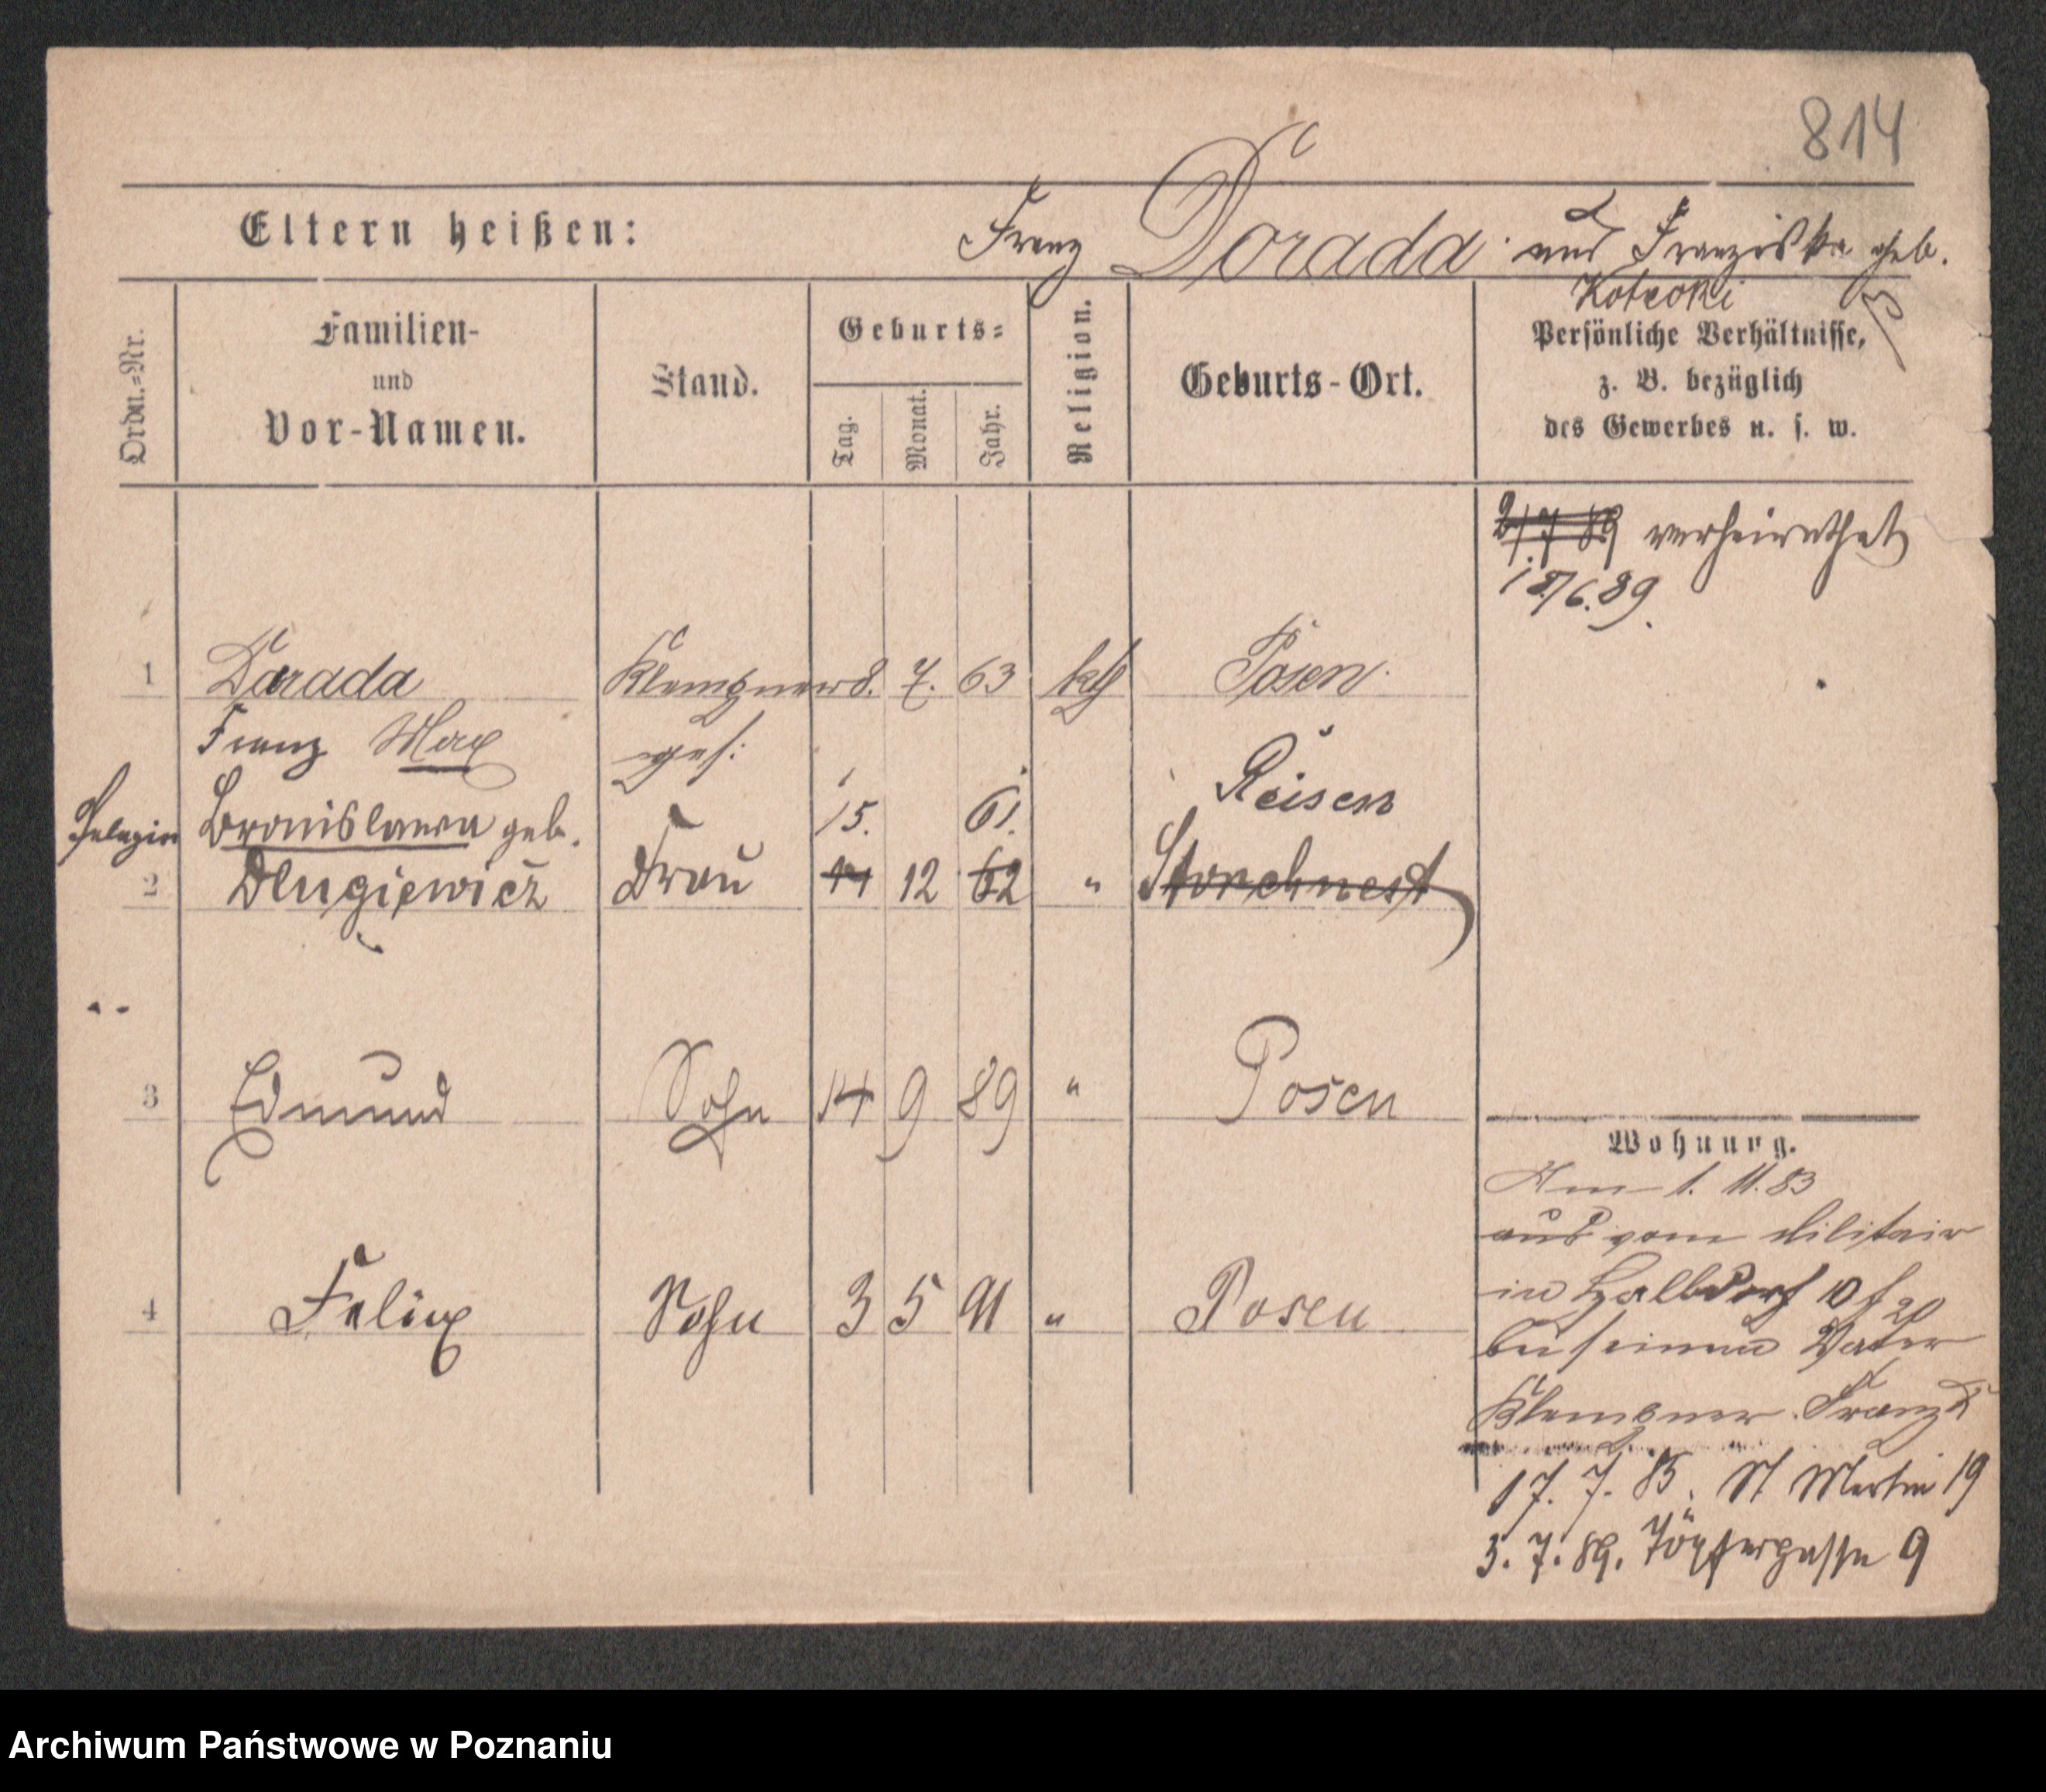 814
Eltern heißen: Franz Dorada und Franziska geb.
Kotecki
Ordn.-Nr.
Familien-
und
Vor-Namen.
Stand.
Geburts-
Tag.
Monat.
Jahr.
Religion.
Geburts-Ort.
Persönliche Verhältnisse,
z. B. bezüglich
des Gewerbes u. s. w.
2/7 89 verheirathet
18/6.89.
1 Darada Klempner 8. 7. 63 kth Posen
Franz Max ges:
Reisen
Pelagia Bronislawa geb. 15. 61.
2 Dlugiewicz Frau 14 12 62 " Storchnest
3 Edmund Sohn 14 9 89 " Posen
Wohnung.
Am 1. 11. 83
aus vom Militair
4 Felix Sohn 3 5 91 " Posen
in Halbdorf 10 f 20
bei seinem Vater
Klempner Franz D
17. 7. 85. St Martin 19
3. 7. 89. Töpfergasse 9
Archiwum Państwowe w Poznaniu